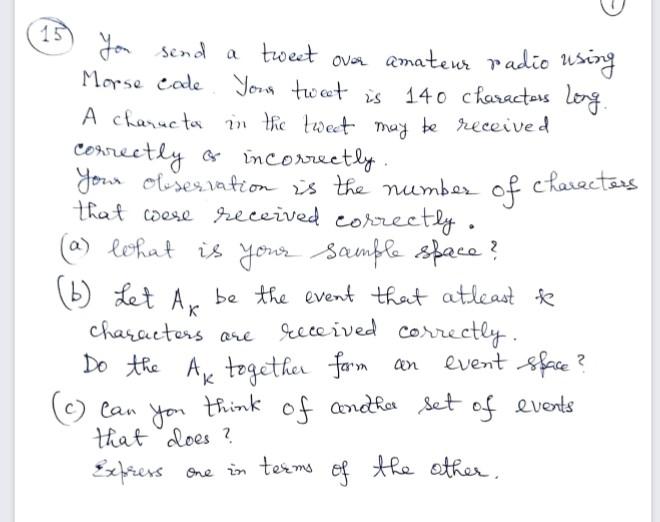 15 You send a tweet over amateur radio using
Morse code. Your tweet is 140 characters long.
A character in the tweet may be received
correctly or incorrectly.
Your observation is the number of characters
that were received correctly.
(a) What is your sample space?
(b) Let A_K be the event that atleast k
characters are received correctly.
Do the A_K together form an event space?
(c) Can you think of another set of events
that does?
Express one in terms of the other.